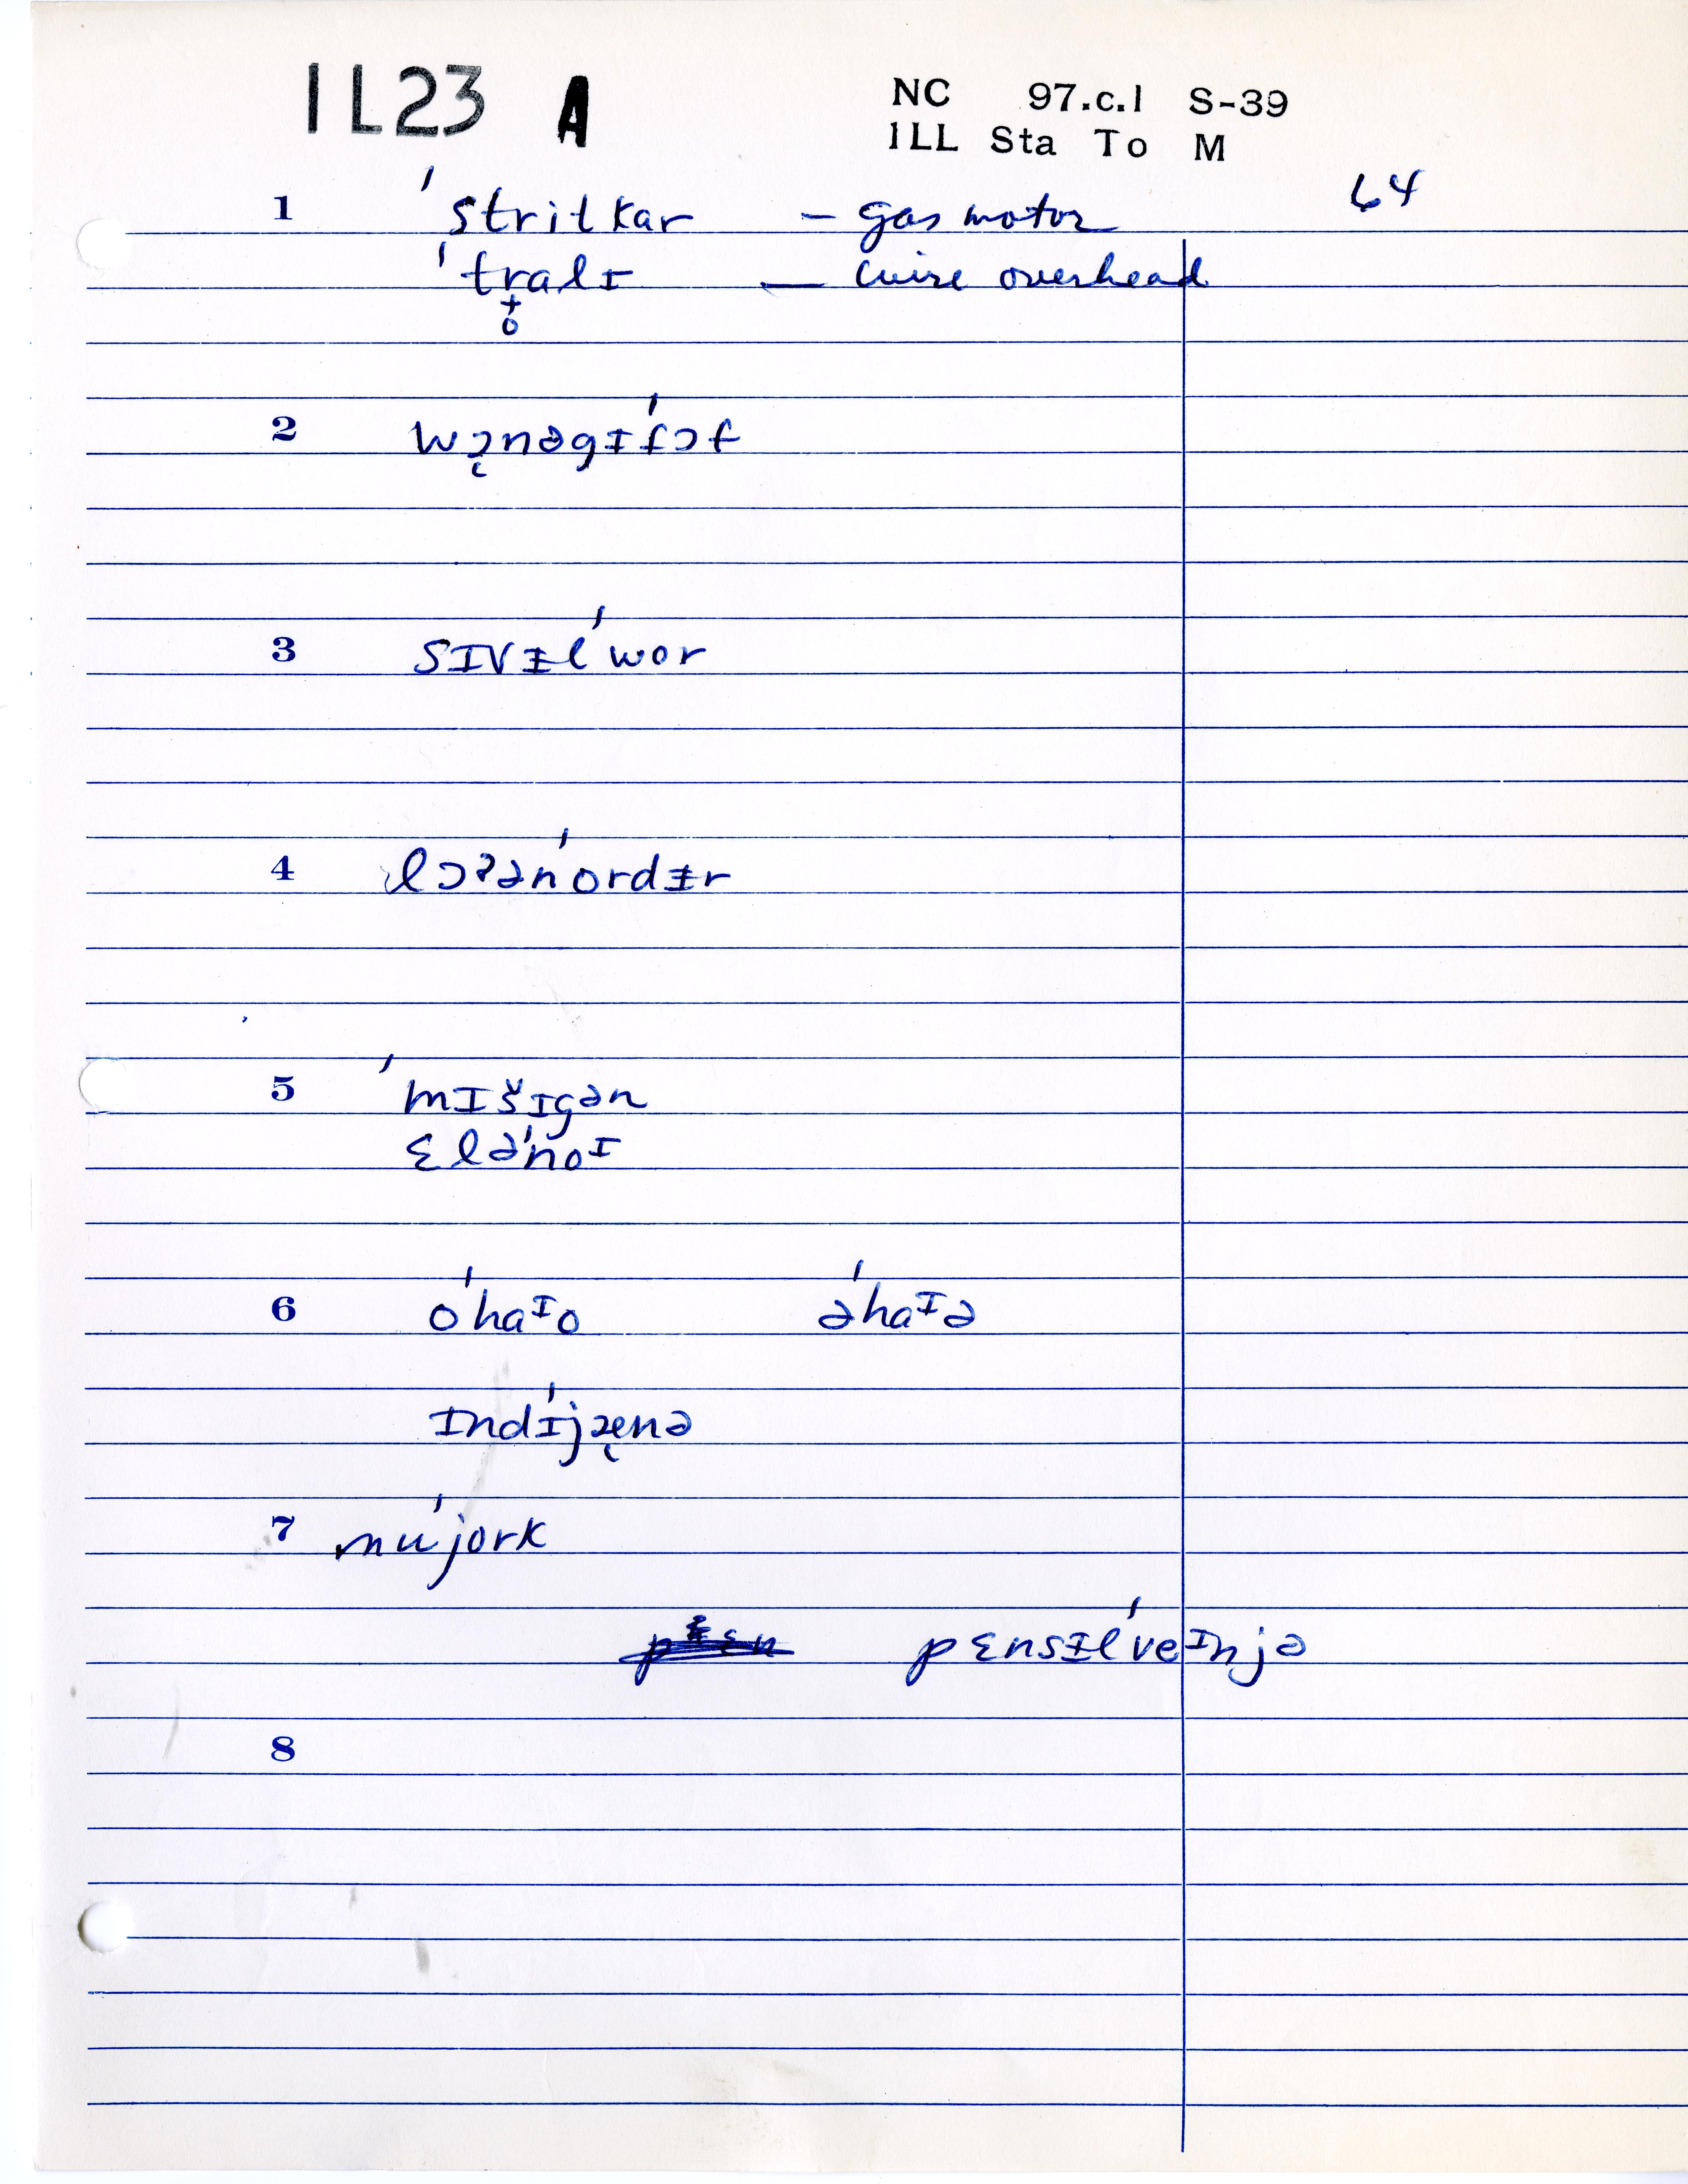 IL23 A NC 97.c.l S-39
ILL Sta To M
64
1 ˈstritkar – gas motor
ˈtralɪ — wire overhead
2 wɔ̨nəgɪˈfɔt
3 sɪvᵻlˈwor
4 lɔʔənˈordᵻr
5 ˈmɪšɪgən
ɛləˈnoɪ
6 oˈhaᶦo əˈhaᶦə
ɪndˈɪjæ̨nə
7 nuˈjork
pɛnsᵻlˈveᶦnjə
8